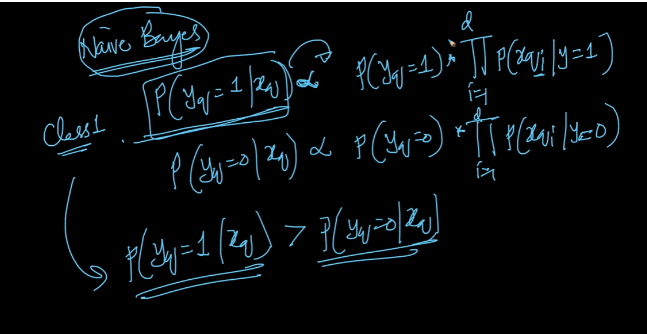 Naive Bayes
P(y_q = 1 | x_q) ∝ P(y_q = 1) * ∏_{i=1}^{d} P(x_{qi} | y = 1)
Class 1 .
P(y_q = 0 | x_q) ∝ P(y_q = 0) * ∏_{i=1}^{d} P(x_{qi} | y = 0)
P(y_q = 1 | x_q) > P(y_q = 0 | x_q)